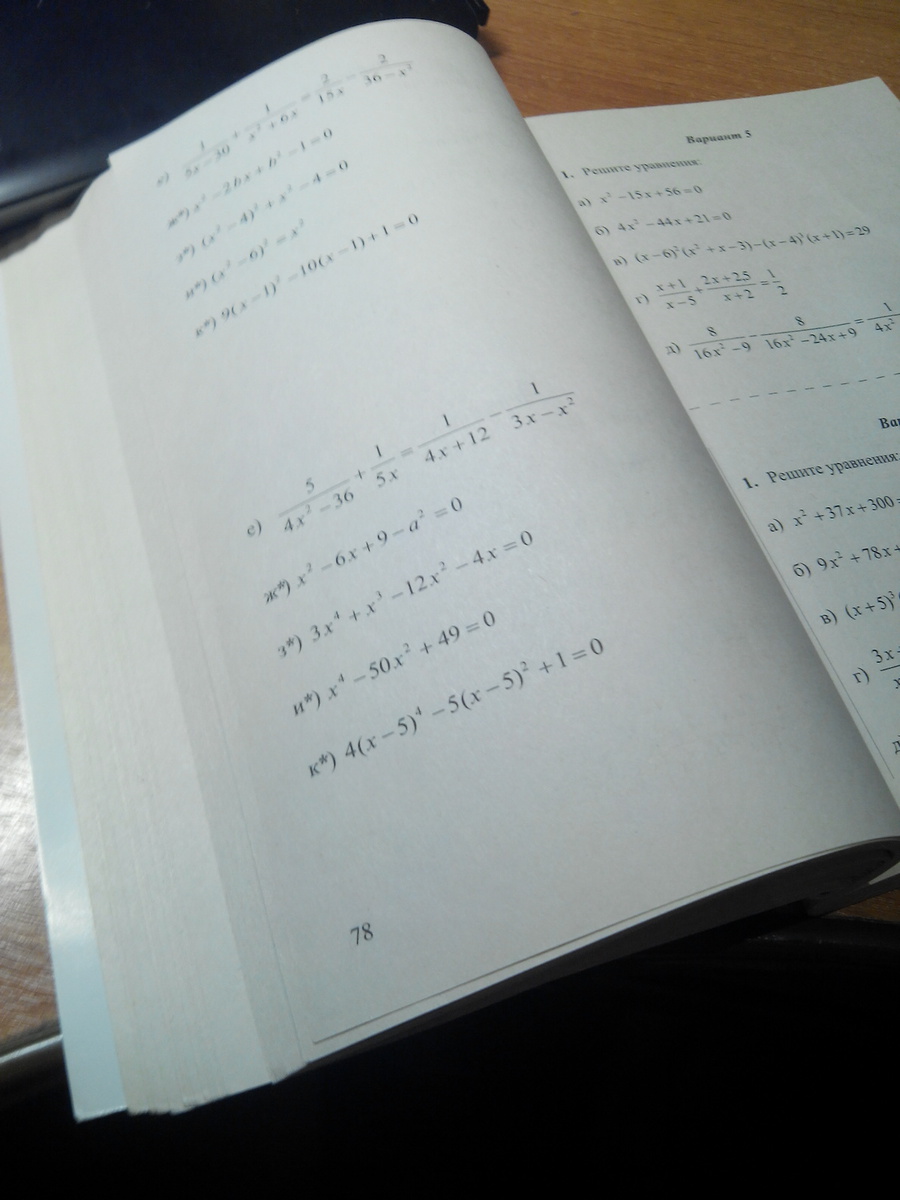 е) 1/(5x − 30) + 1/(x² + 6x) = 2/(15x) − 2/(36 − x²)
ж*) x² − 2bx + b² − 1 = 0
з*) (x² − 4)² + x² − 4 = 0
и*) (x² − 6)² = x²
к*) 9(x − 1)² − 10(x − 1) + 1 = 0
е) 5/(4x² − 36) + 1/(5x) = 1/(4x + 12) − 1/(3x − x²)
ж*) x² − 6x + 9 − a² = 0
з*) 3x⁴ + x³ − 12x² − 4x = 0
и*) x⁴ − 50x² + 49 = 0
к*) 4(x − 5)⁴ − 5(x − 5)² + 1 = 0
78
Вариант 5
1. Решите уравнения:
а) x² − 15x + 56 = 0
б) 4x² − 44x + 21 = 0
в) (x − 6)²(x² + x − 3) − (x − 4)³(x + 1) = 29
г) (x + 1)/(x − 5) + (2x + 25)/(x + 2) = 1/2
д) 8/(16x² − 9) − 8/(16x² − 24x + 9) = 1/(4x²
Ва
1. Решите уравнения:
а) x² + 37x + 300 =
б) 9x² + 78x +
в) (x + 5)³
г) 3x
д